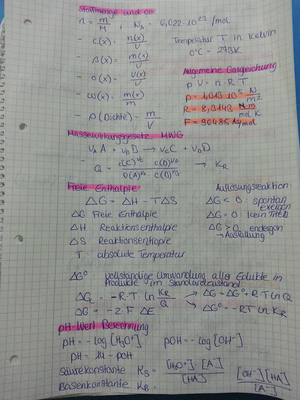 Stoffmenge und co
n = m/M , N_A = 6,022·10²³ /mol
- c(x) = n(x)/V Temperatur T in Kelvin
0°C = 273K
- β(x) = m(x)/V
- σ(x) = V(x)/V Allgemeine Gasgleichung
- ω(x) = m(x)/m p V = n · R · T
- ρ (Dichte) = m/V
R = 8,3143
Massenwirkungsgesetz MWG
- Q = → K_R
Freie Enthalpie Auflösungsreaktion
ΔG = ΔH - TΔS ΔG < 0 spontan, exergon
ΔG Freie Enthalpie ΔG = 0
ΔH Reaktionsenthalpie ΔG > 0 endergon
ΔS Reaktionsentropie → Ausfällung
T absolute Temperatur
ΔG° vollständige Umwandlung aller Edukte in
Produkte im Standardzustand
= -R·T ln K_R/Q → ΔG = ΔG° + R T ln Q
ΔG = -z·F·ΔE → ΔG° = -RT ln K_R
pH-Wert Berechnung
pH = -log [H₃O⁺] pOH = -log [OH⁻]
pH = 14 - pOH
Säurekonstante K_S = [H₃O⁺]·[A⁻]/[HA]
Basenkonstante K_B = [OH⁻][HA]/[A⁻]